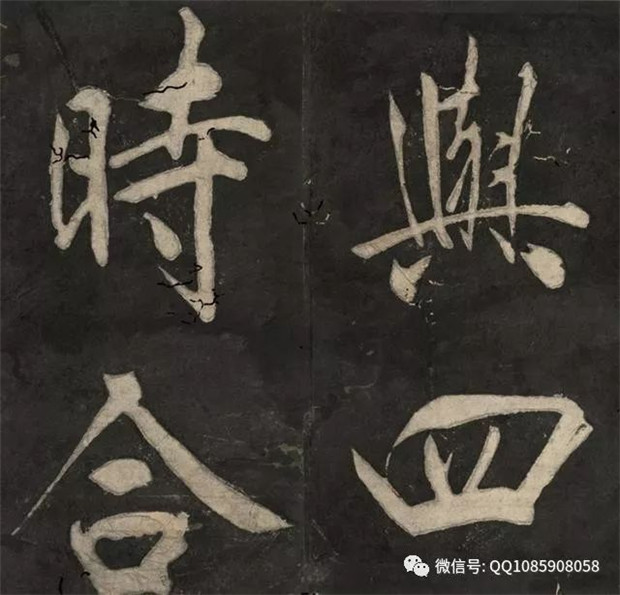 與四
時合
微信号: QQ1085908058